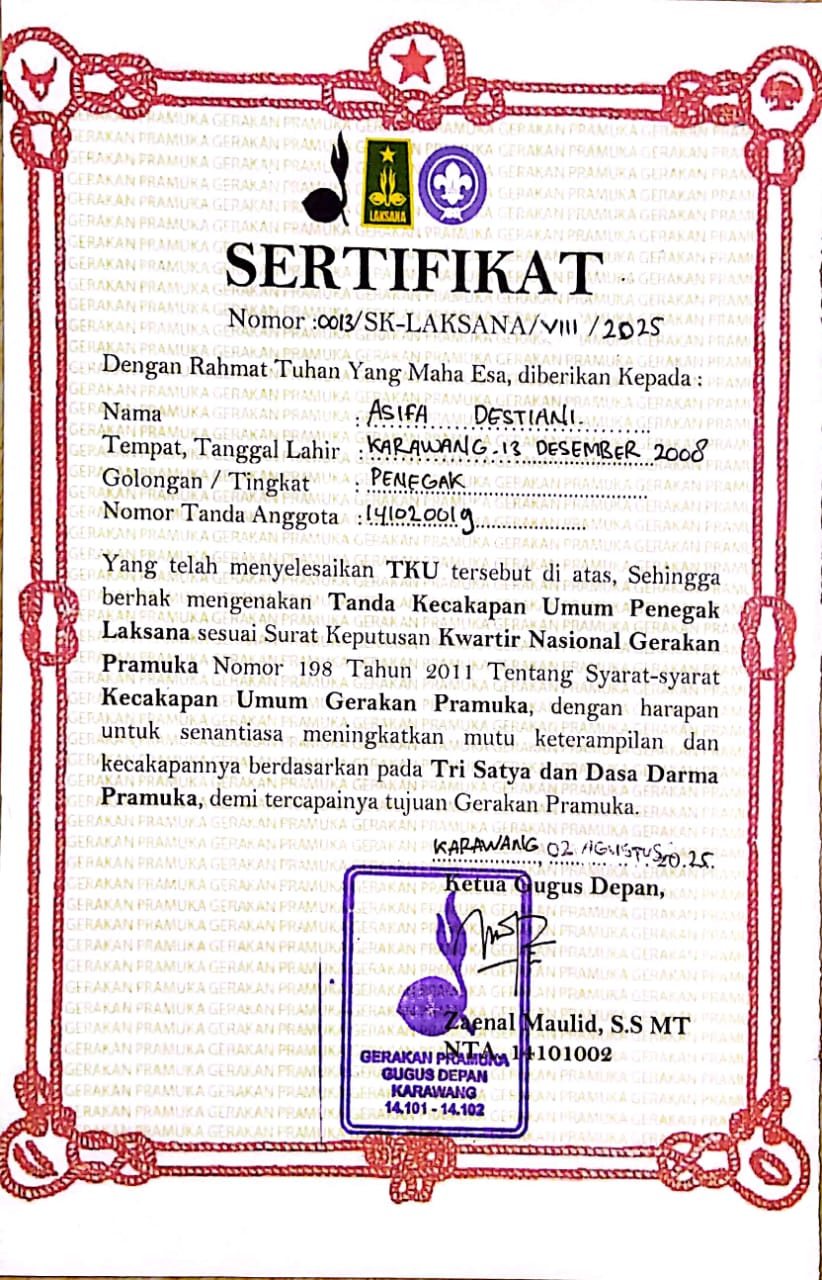 LAKSANA
SERTIFIKAT
Nomor :0013/SK-LAKSANA/VIII/2025
Dengan Rahmat Tuhan Yang Maha Esa, diberikan Kepada :
Nama : ASIFA DESTIANI.
Tempat, Tanggal Lahir : KARAWANG-13 DESEMBER 2008
Golongan / Tingkat : PENEGAK
Nomor Tanda Anggota : 141020019
Yang telah menyelesaikan TKU tersebut di atas, Sehingga
berhak mengenakan Tanda Kecakapan Umum Penegak
Laksana sesuai Surat Keputusan Kwartir Nasional Gerakan
Pramuka Nomor 198 Tahun 2011 Tentang Syarat-syarat
Kecakapan Umum Gerakan Pramuka, dengan harapan
untuk senantiasa meningkatkan mutu keterampilan dan
kecakapannya berdasarkan pada Tri Satya dan Dasa Darma
Pramuka, demi tercapainya tujuan Gerakan Pramuka.
KARAWANG, 02 AGUSTUS 2025.
Ketua Gugus Depan,
Zaenal Maulid, S.S MT
NTA. 14101002
GERAKAN PRAMUKA
GUGUS DEPAN
KARAWANG
14.101 - 14.102